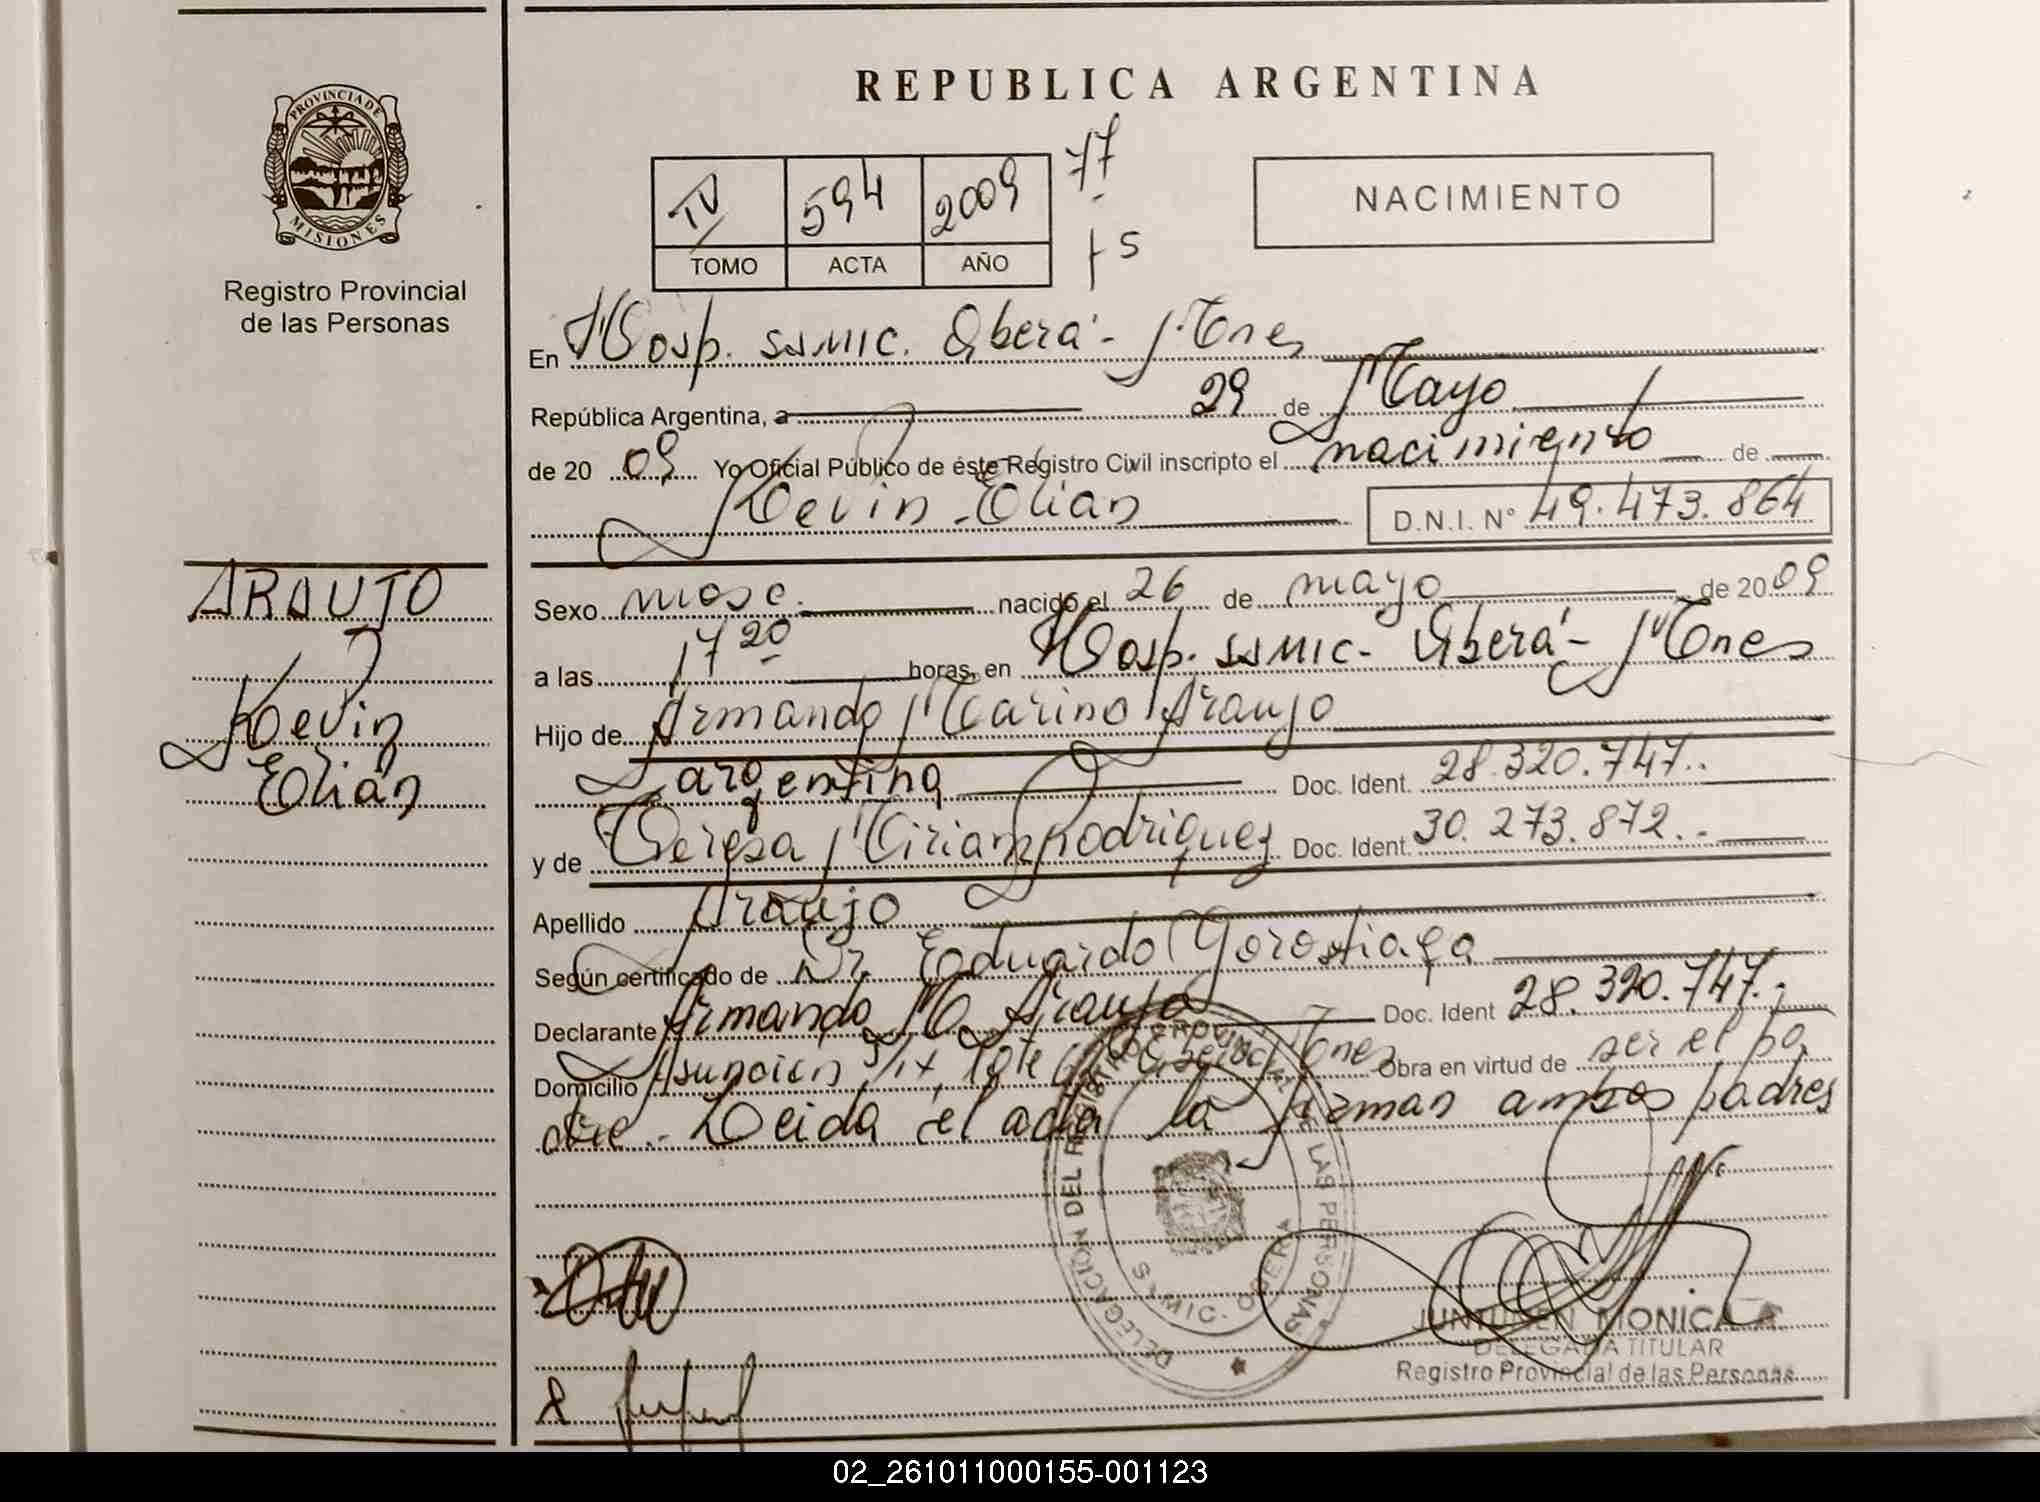 REPUBLICA ARGENTINA
PROVINCIA DE
MISIONES
Registro Provincial
de las Personas
IV 594 2009 77
TOMO ACTA AÑO
NACIMIENTO
En Hosp. SSMIC. Oberá - Mnes
República Argentina, a 29 de Mayo
de 20 09 Yo Oficial Público de éste Registro Civil inscripto el nacimiento de
Kevin Elian D.N.I. N° 49.473.864
ARAUJO
Kevin
Elián
Sexo masc. nacido el 26 de mayo de 20 09
a las 17 20 horas, en Hosp. SSMIC - Oberá - Mnes
Hijo de Armando Marino Araujo
argentina Doc. Ident. 28.320.747.
y de Teresa Miriam Rodriguez Doc. Ident. 30.273.872.
Apellido Araujo
Según certificado de Dr Eduardo Gorostiaga
Declarante Armando M. Araujo Doc. Ident 28.320.747.
Domicilio Lote Mnes Obra en virtud de ser el pa
dre. Leida el acta la firman ambos padres
DELEGACION DEL REGISTRO PROVINCIAL DE LAS PERSONAS
S.S.M.I.C. OBERA
JUNTUNEN MONICA
DELEGADA TITULAR
Registro Provincial de las Personas
02_261011000155-001123